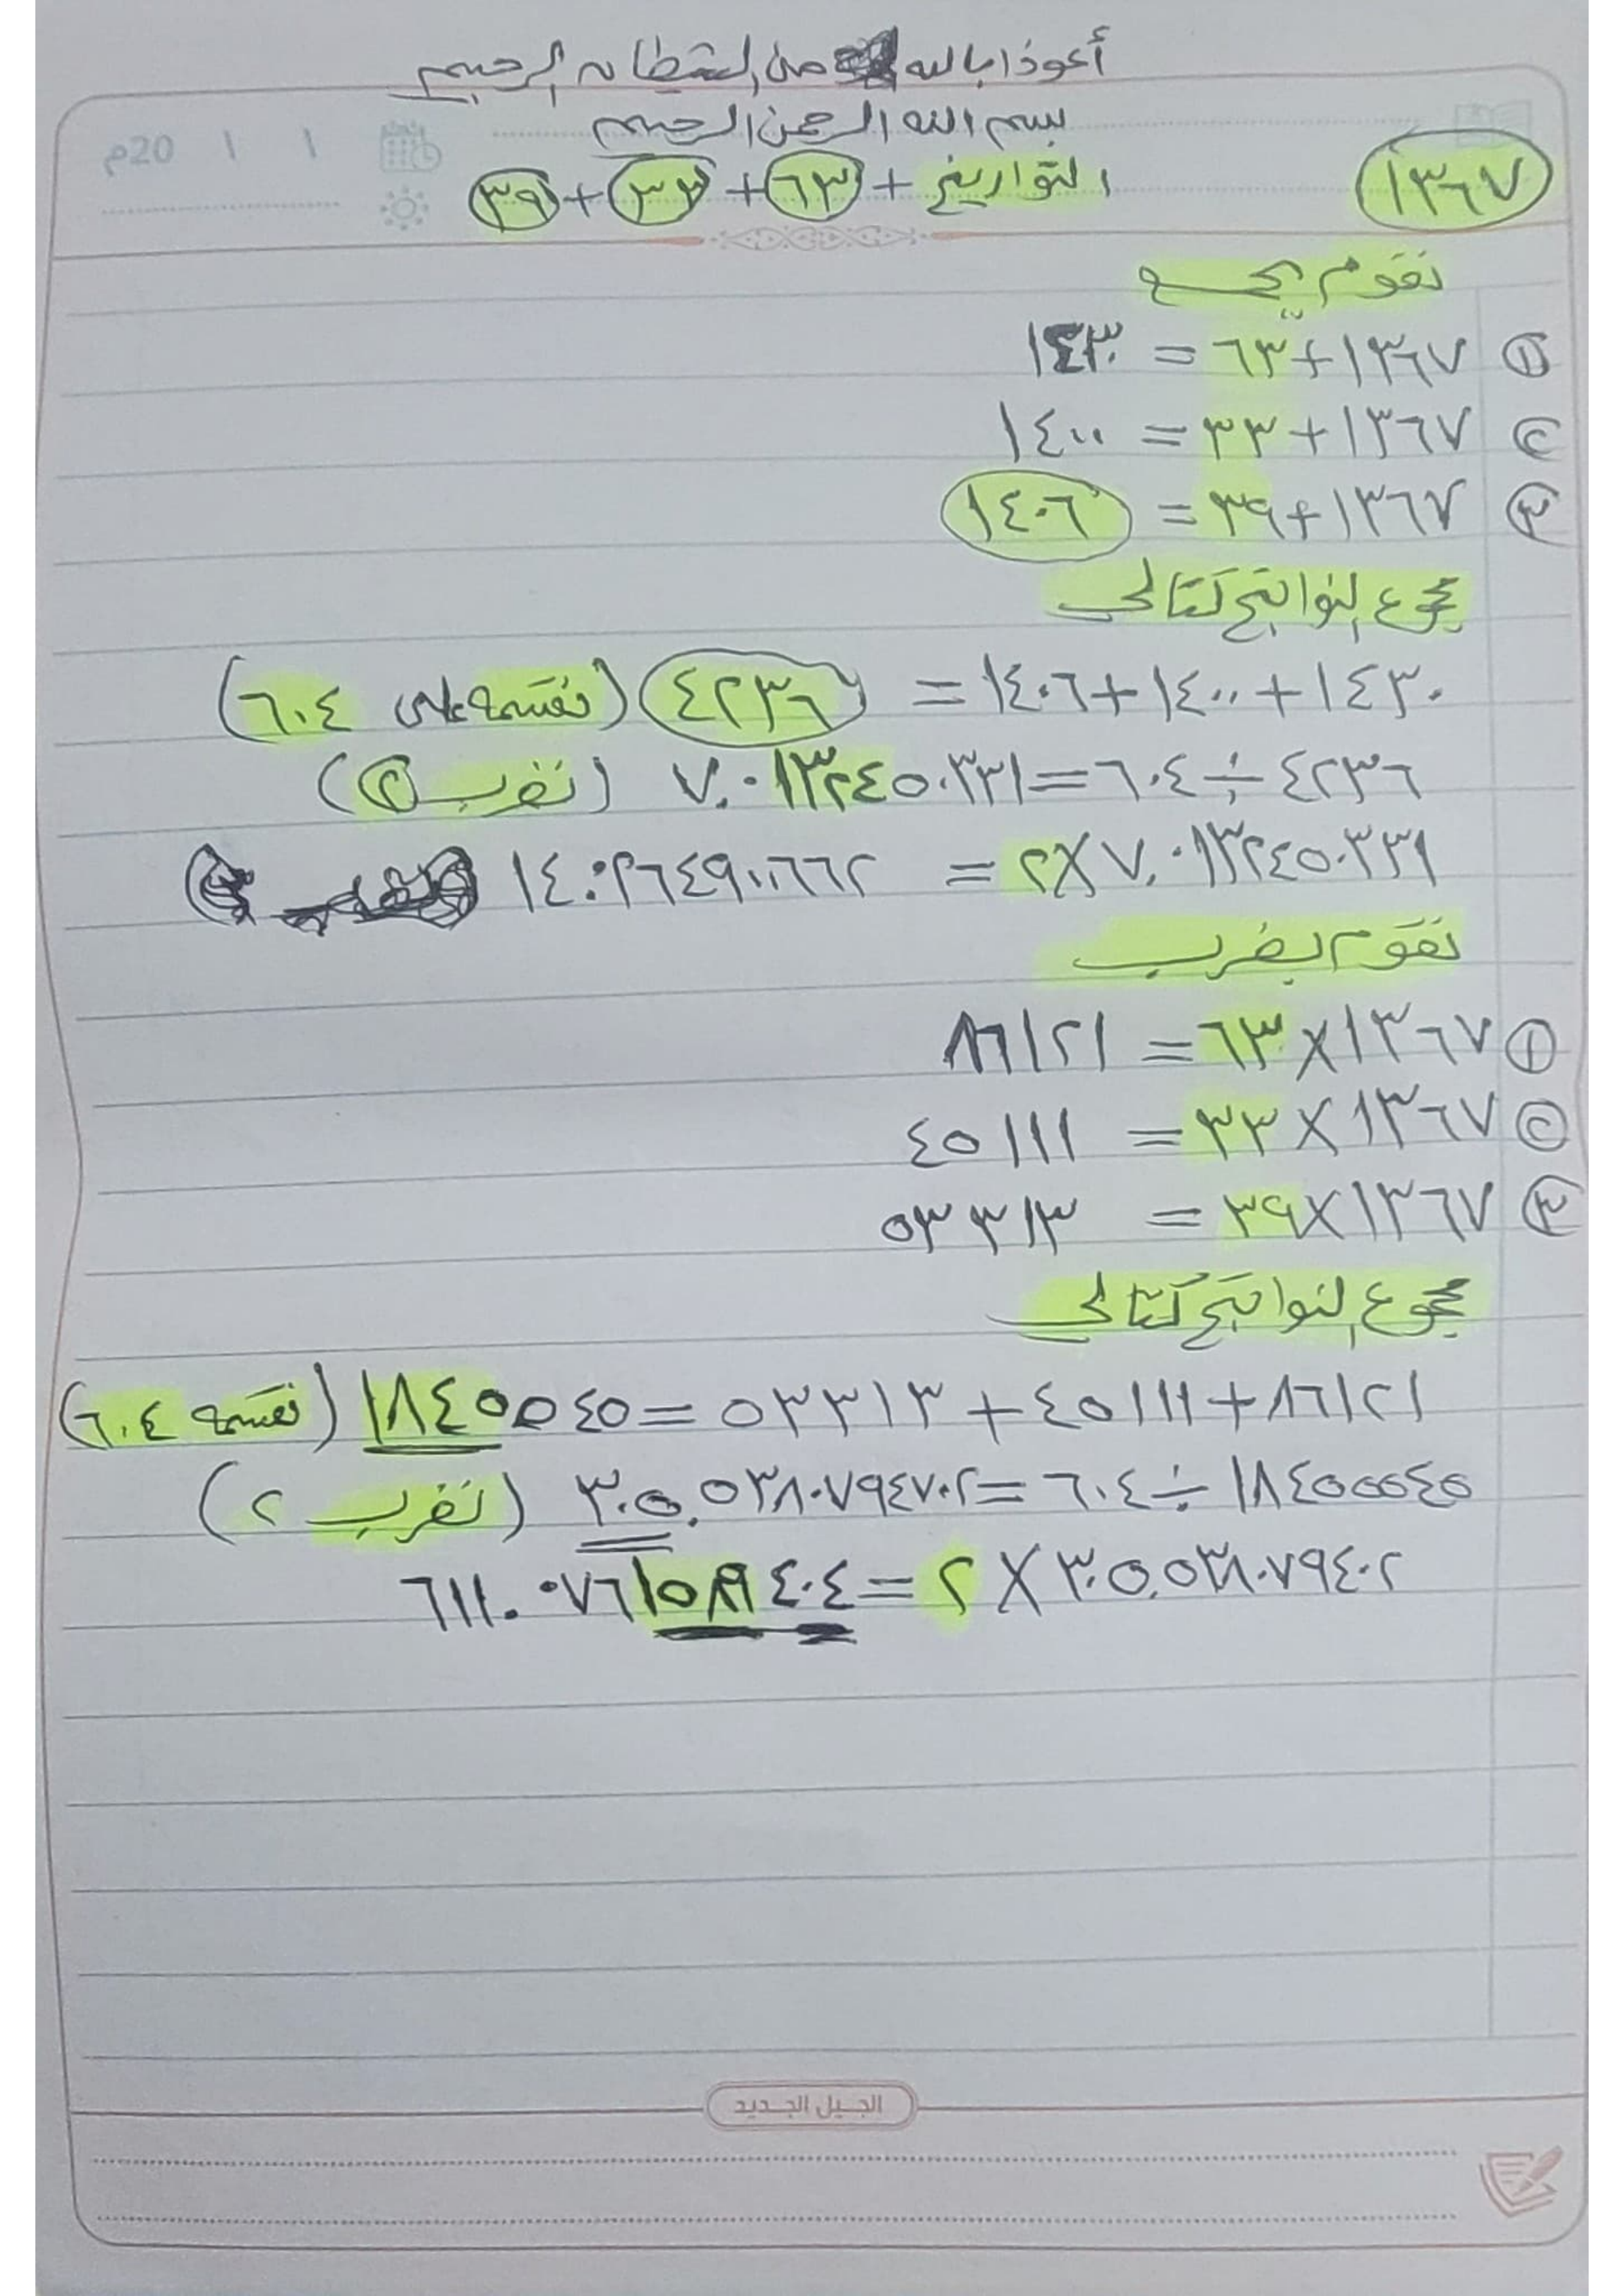 أعوذ بالله من الشيطان الرجيم
بسم الله الرحمن الرحيم
١٣٦٧
التواريخ + ٦٣ + ٣٣ + ٣٩
20م / /
نقوم بجمع
١ ١٣٦٧+٦٣ = ١٤٣٠
٢ ١٣٦٧+٣٣ = ١٤٠٠
٣ ١٣٦٧+٣٩ = ١٤٠٦
مجموع النواتج كتالي
١٤٣٠+١٤٠٠+١٤٠٦ = ٤٢٣٦ (نقسمه على ٦٠٤)
٤٢٣٦÷٦٠٤=٧.٠١٣٢٤٥٠٣٣١ (نضرب ٢)
٧.٠١٣٢٤٥٠٣٣١×٢ = ١٤.٠٢٦٤٩٠٠٦٦٢
نقوم بضرب
١ ١٣٦٧×٦٣ = ٨٦١٢١
٢ ١٣٦٧×٣٣ = ٤٥١١١
٣ ١٣٦٧×٣٩ = ٥٣٣١٣
مجموع النواتج كتالي
٨٦١٢١+٤٥١١١+٥٣٣١٣=١٨٤٥٥٤٥ (نقسمه ٦٠٤)
١٨٤٥٥٥٤٥÷٦٠٤=٣٠٥.٥٣٨٠٧٩٤٧٠٢ (نضرب ٢)
٣٠٥.٥٣٨٠٧٩٤٠٢×٢=٦١١.٠٧٦١٥٨٩٤٠٤
الجيل الجديد